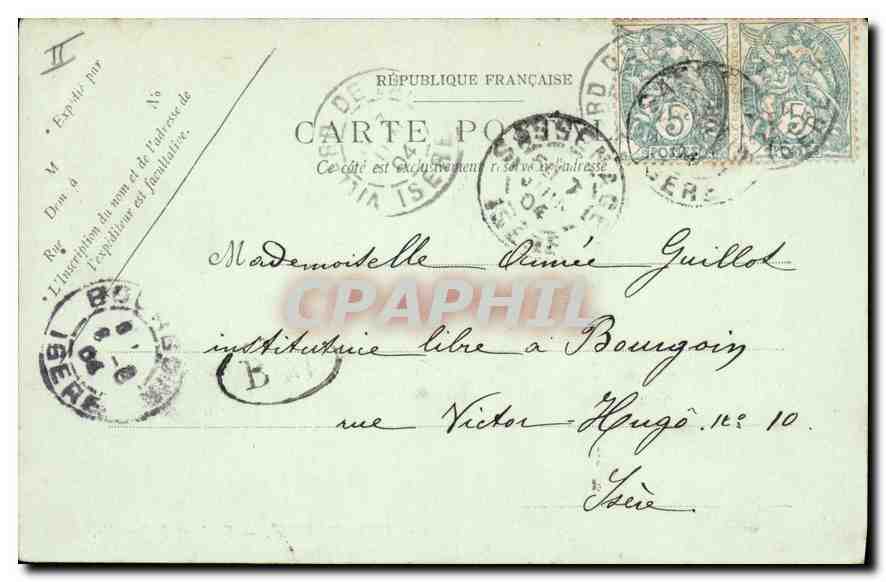 II
RÉPUBLIQUE FRANÇAISE
CARTE POSTALE
Ce côté est exclusivement réservé à l'adresse
Expédié par
M
No
Dem. à
Rue
L'Inscription du nom et de l'adresse de
l'expéditeur est facultative.
5c 5c
SASSENAGE
ISÈRE
04
ISERE
04
BOURGOIN
ISERE
04
CPAPHIL
Mademoiselle Aimée Guillot
institutrice libre à Bourgoin
B
rue Victor-Hugô. No 10.
Isère.